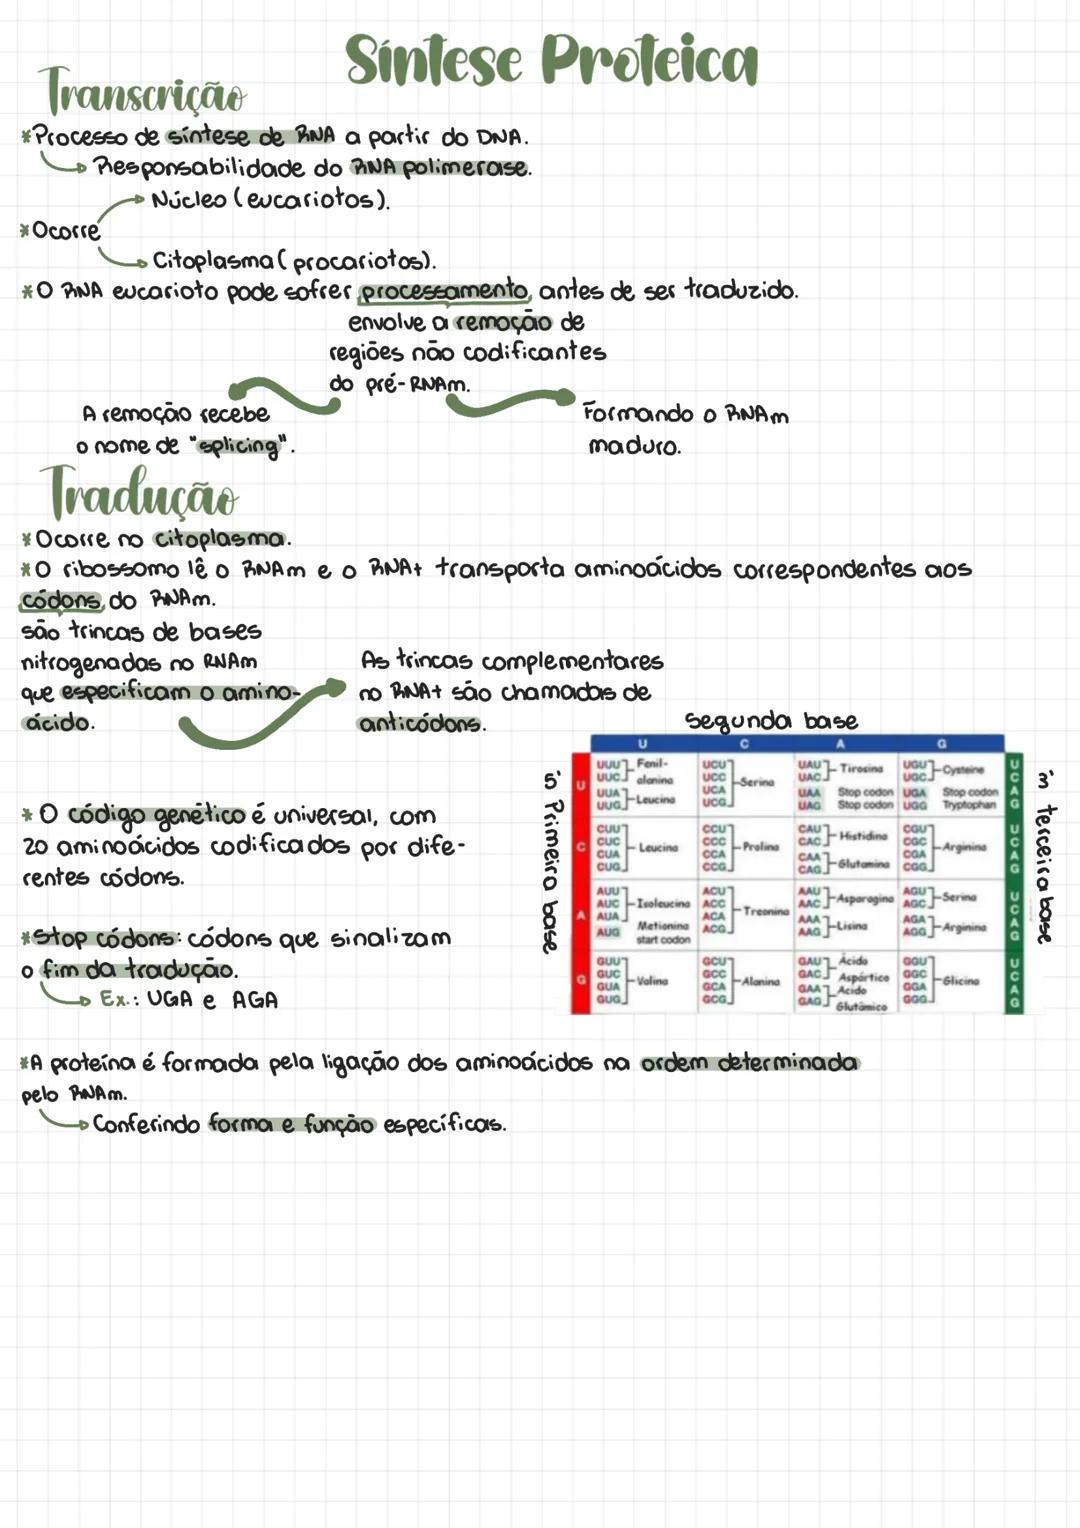 Síntese Proteica
Transcrição
*Processo de síntese de RNA a partir do DNA.
Responsabilidade do RNA polimerase.
Núcleo (eucariotos).
*Ocorre
Citoplasma (procariotos).
*O RNA eucarioto pode sofrer processamento, antes de ser traduzido.
envolve a remoção de
regiões não codificantes
do pré-RNAm.
A remoção recebe
o nome de "splicing".
Formando o RNAm
maduro.
Tradução
*Ocorre no citoplasma.
*O ribossomo lê o RNAm e o RNAt transporta aminoácidos correspondentes aos
códons, do RNAm.
são trincas de bases
nitrogenadas no RNAm
que especificam o amino-
ácido.
As trincas complementares
no RNAt são chamadas de
anticódons.
Segunda base
U C A G
5' Primeira base
3' terceira base
U
UUU UUC Fenil-alanina
UUA UUG Leucina
UCU UCC UCA UCG Serina
UAU UAC Tirosina
UAA Stop codon
UAG Stop codon
UGU UGC Cysteine
UGA Stop codon
UGG Tryptophan
U C A G
C
CUU CUC CUA CUG Leucina
CCU CCC CCA CCG Prolina
CAU CAC Histidina
CAA CAG Glutamina
CGU CGC CGA CGG Arginina
U C A G
A
AUU AUC AUA Isoleucina
AUG Metionina start codon
ACU ACC ACA ACG Treonina
AAU AAC Asparagina
AAA AAG Lisina
AGU AGC Serina
AGA AGG Arginina
U C A G
G
GUU GUC GUA GUG Valina
GCU GCC GCA GCG Alanina
GAU GAC Ácido Aspártico
GAA GAG Ácido Glutâmico
GGU GGC GGA GGG Glicina
U C A G
* O código genético é universal, com
20 aminoácidos codificados por dife-
rentes códons.
*Stop códons: códons que sinalizam
o fim da tradução.
Ex.: UGA e AGA
*A proteína é formada pela ligação dos aminoácidos na ordem determinada
pelo RNAm.
Conferindo forma e função específicas.